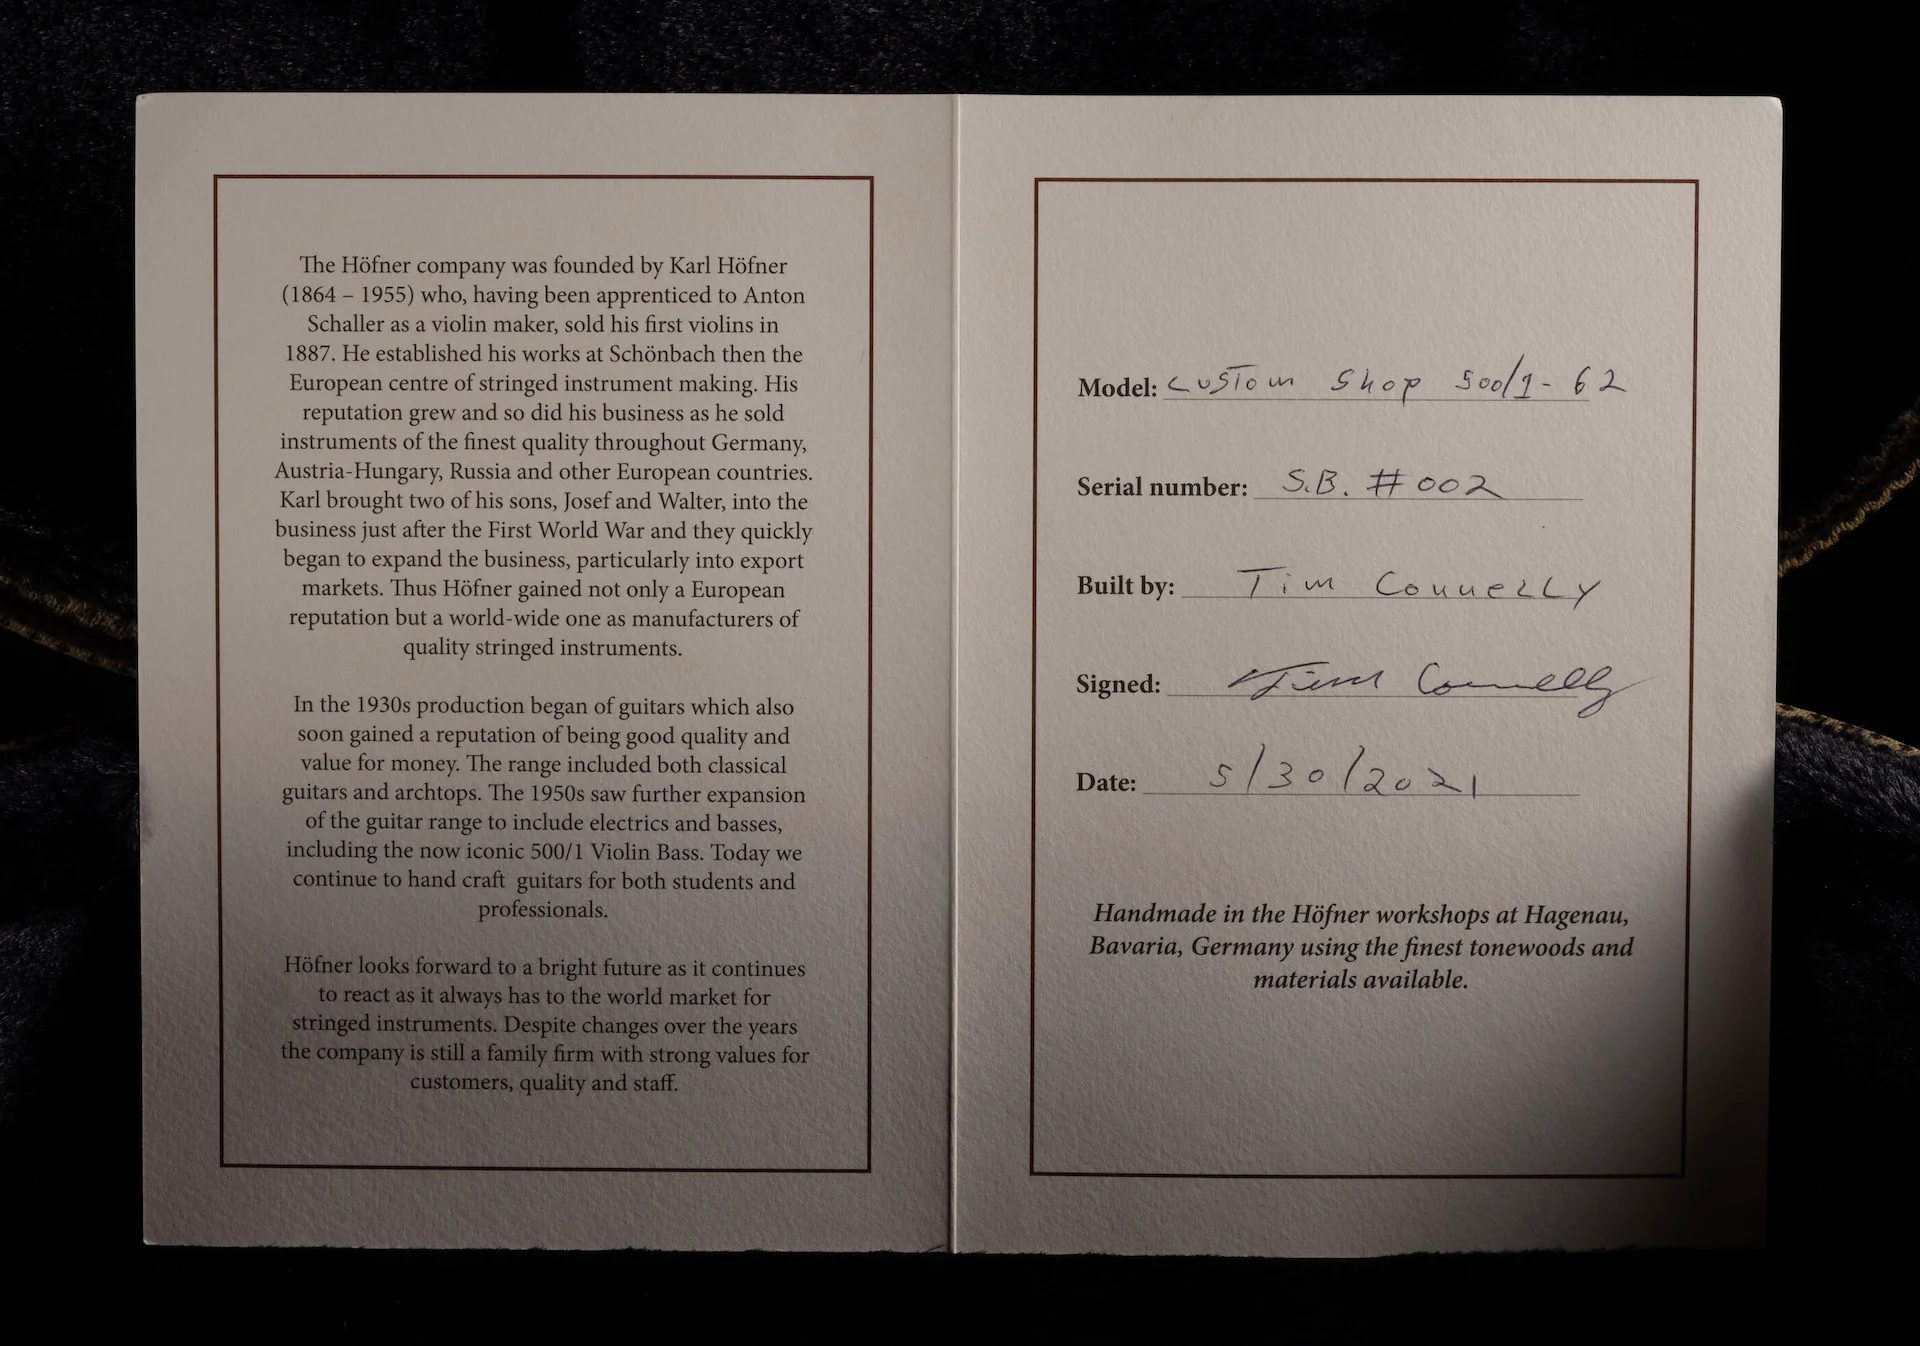 The Höfner company was founded by Karl Höfner
(1864 – 1955) who, having been apprenticed to Anton
Schaller as a violin maker, sold his first violins in
1887. He established his works at Schönbach then the
European centre of stringed instrument making. His
reputation grew and so did his business as he sold
instruments of the finest quality throughout Germany,
Austria-Hungary, Russia and other European countries.
Karl brought two of his sons, Josef and Walter, into the
business just after the First World War and they quickly
began to expand the business, particularly into export
markets. Thus Höfner gained not only a European
reputation but a world-wide one as manufacturers of
quality stringed instruments.
In the 1930s production began of guitars which also
soon gained a reputation of being good quality and
value for money. The range included both classical
guitars and archtops. The 1950s saw further expansion
of the guitar range to include electrics and basses,
including the now iconic 500/1 Violin Bass. Today we
continue to hand craft guitars for both students and
professionals.
Höfner looks forward to a bright future as it continues
to react as it always has to the world market for
stringed instruments. Despite changes over the years
the company is still a family firm with strong values for
customers, quality and staff.
Model: Custom Shop 500/1-62
Serial number: S.B. #002
Built by: Tim Connelly
Signed: Tim Connelly
Date: 5/30/2021
Handmade in the Höfner workshops at Hagenau,
Bavaria, Germany using the finest tonewoods and
materials available.